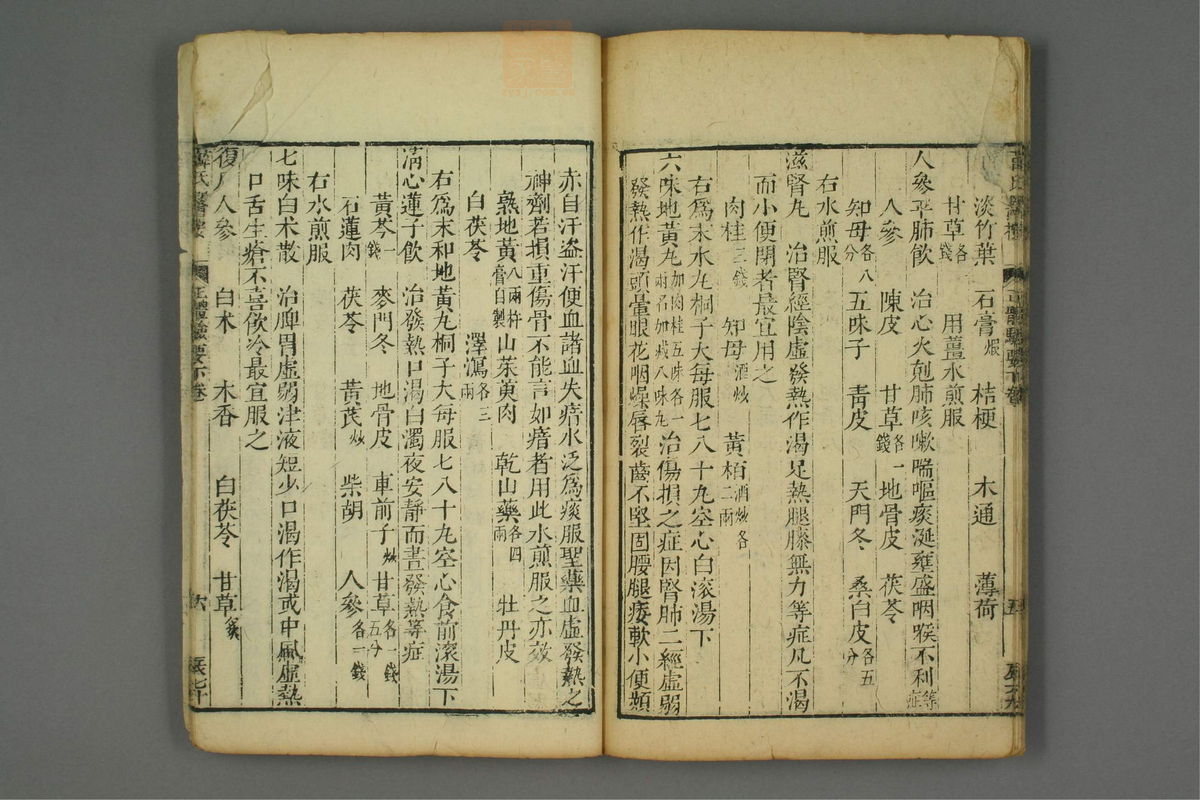 淡竹葉 石膏煅 桔梗 木通 薄荷
甘草各錢 用薑水煎服
人參平肺飲 治心火剋肺咳嗽喘嘔痰涎壅盛咽喉不利等症
人參 陳皮 甘草各一錢 地骨皮 茯苓
知母各八分 五味子 青皮 天門冬 桑白皮各五分
右水煎服
滋腎丸 治腎經陰虛發熱作渴足熱腿膝無力等症凡不渴
而小便閉者最宜用之
肉桂三錢 知母酒炒 黃栢酒炒各二兩
右為末水丸桐子大每服七八十丸空心白滚湯下
六味地黃丸加肉桂五味各一兩名加減八味丸 治傷損之症因腎肺二經虛弱
發熱作渴頭暈眼花咽燥唇裂齒不堅固腰腿痿軟小便頻
五
赤自汗盗汗便血諸血失瘖水泛為痰服聖藥血虛發熱之
神劑若損重傷骨不能言如瘖者用此水煎服之亦效
熟地黃八兩杵膏自製 山茱萸肉 乾山藥各四兩 牡丹皮
白茯苓 澤瀉各三兩
右為末和地黃丸桐子大每服七八十丸空心食前滚湯下
清心蓮子飲 治發熱口渴白濁夜安靜而晝發熱等症
黃芩一錢 麥門冬 地骨皮 車前子炒 甘草各一錢五分
石蓮肉 茯苓 黃芪炒 柴胡 人參各一錢
右水煎服
七味白术散 治脾胃虛弱津液短少口渴作渴或中風虛熱
口舌生瘡不喜飲冷最宜服之
人參 白术 木香 白茯苓 甘草炙
薛氏醫按 正體類要下卷 六